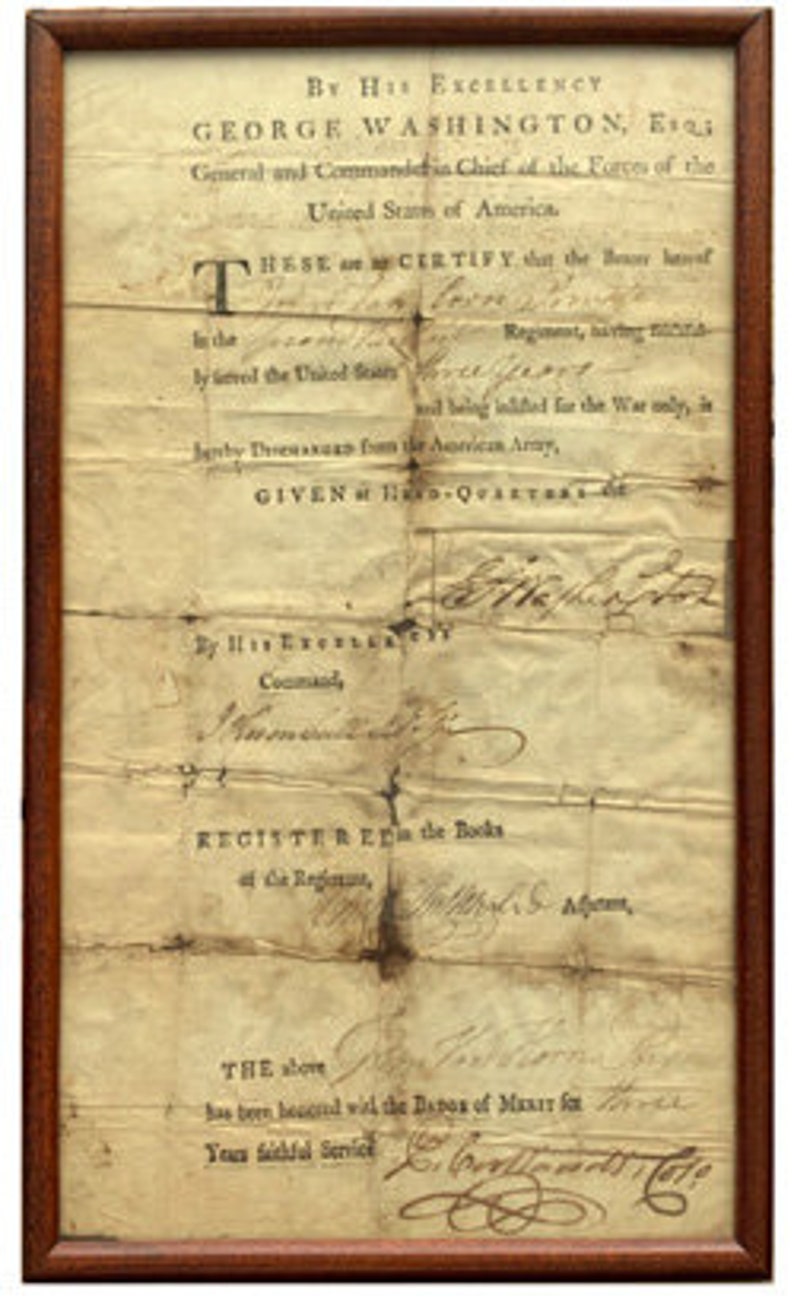 By His Excellency
GEORGE WASHINGTON, Esq;
General and Commander in Chief of the Forces of the
United States of America.
THESE are to CERTIFY that the Bearer hereof
in the Regiment, having
ly served the United States three years
and being inlisted for the War only, is
hereby Discharged from the American Army.
GIVEN at Head-Quarters the
G Washington
By His Excellency's
Command,
REGISTERED in the Books
of the Regiment,
Adjutant,
THE above
has been honored with the Badge of Merit for three
Years faithful Service
Cortlandt, Colo